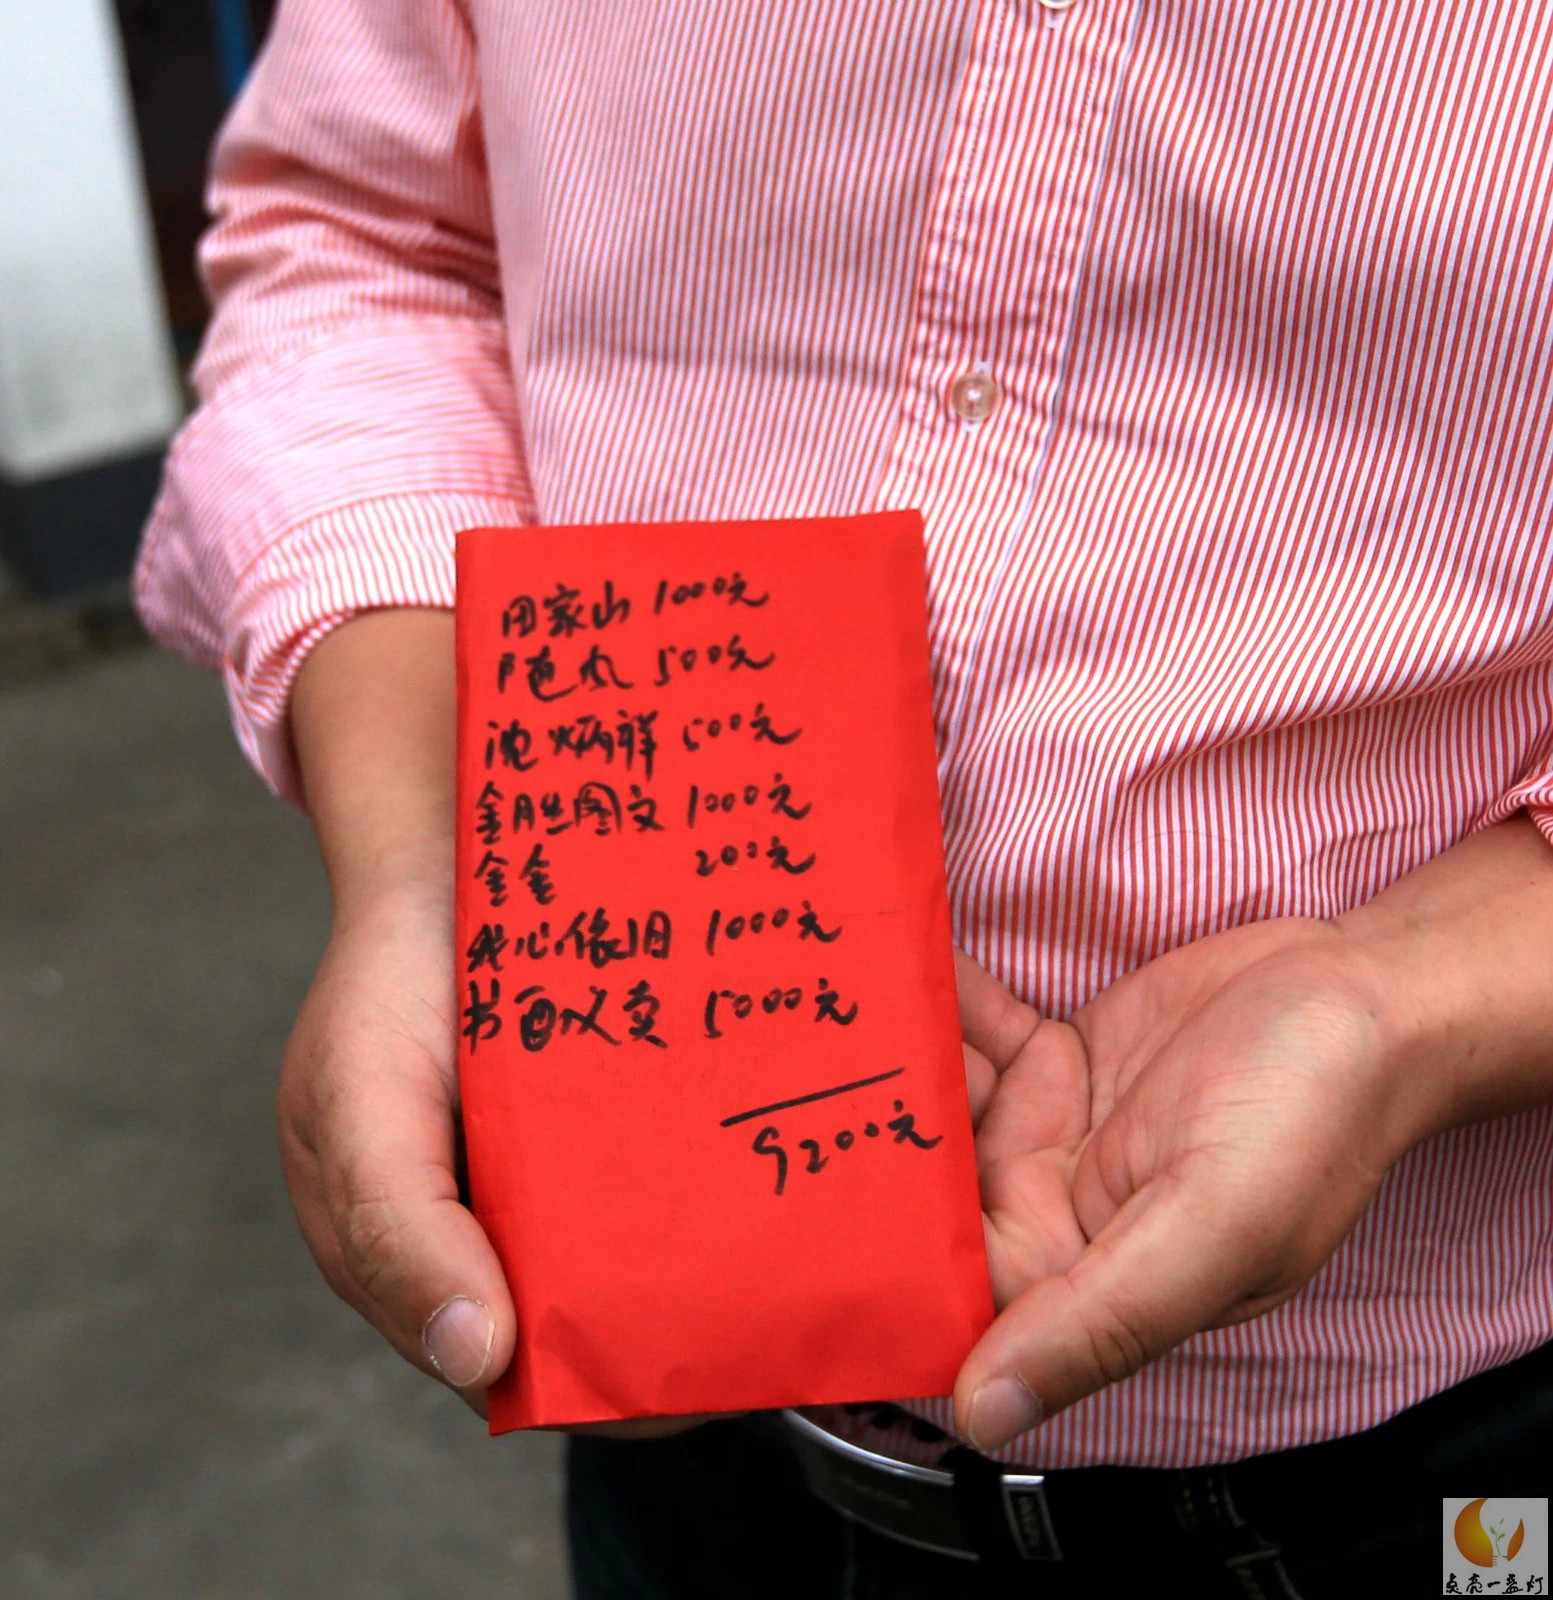 田家山 1000元
随风 500元
沈炳祥 500元
金胜图文 1000元
金金 200元
我心依旧 1000元
书画义卖 5000元
9200元
点亮一盏灯